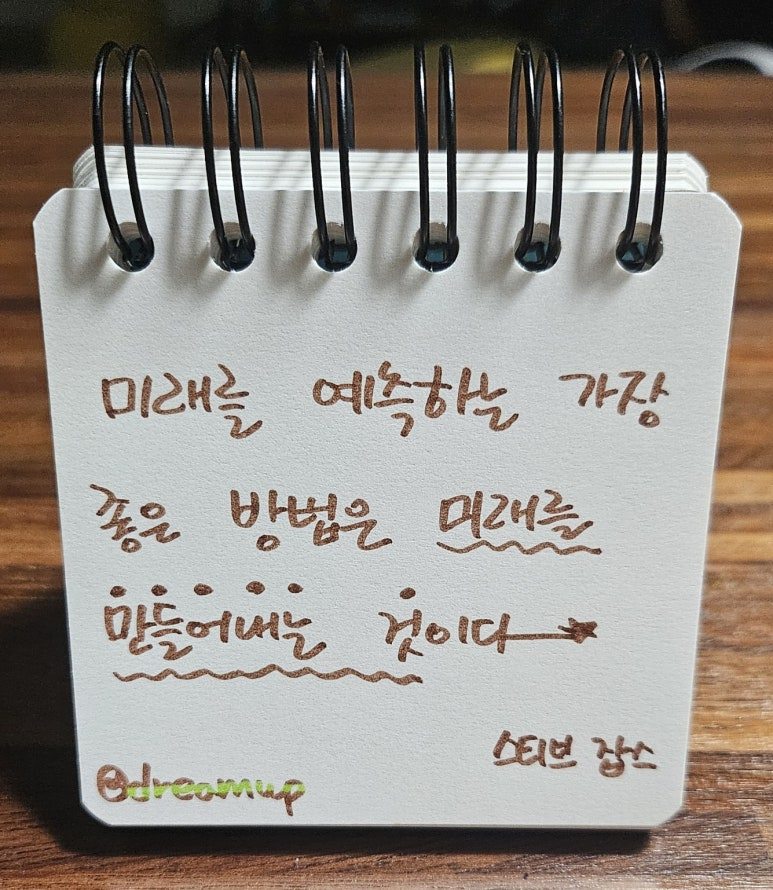 미래를 예측하는 가장
좋은 방법은 미래를
만들어내는 것이다
스티브 잡스
@dreamup